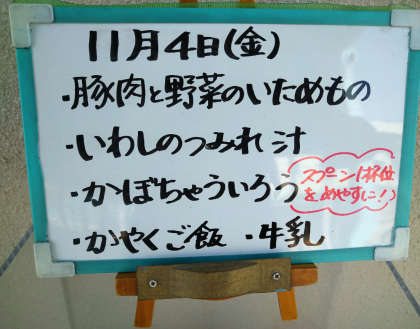 11月4日(金)
・豚肉と野菜のいためもの
・いわしのつみれ汁
・かぼちゃういろう
スプーン1杯位
をめやすに!
・かやくご飯 ・牛乳